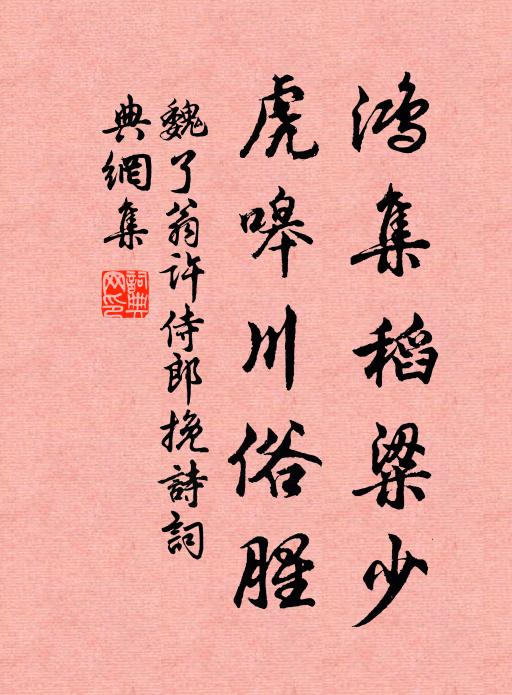 鸿集稻粱少
虎嗥川俗腥
魏了翁许侍郎挽詩詞
典網集
詞典網印